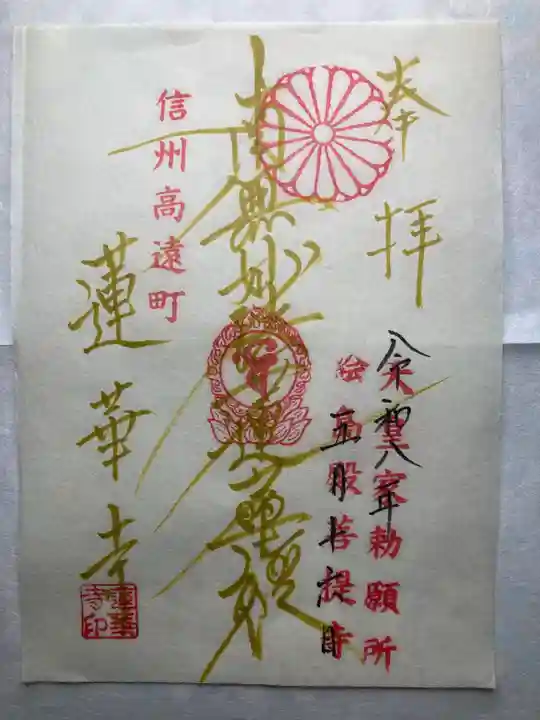 奉拝
天皇家勅願所
令和八年
絵島殿菩提寺
五月十日
南無妙法蓮華経
信州高遠町
蓮華寺
蓮華寺印